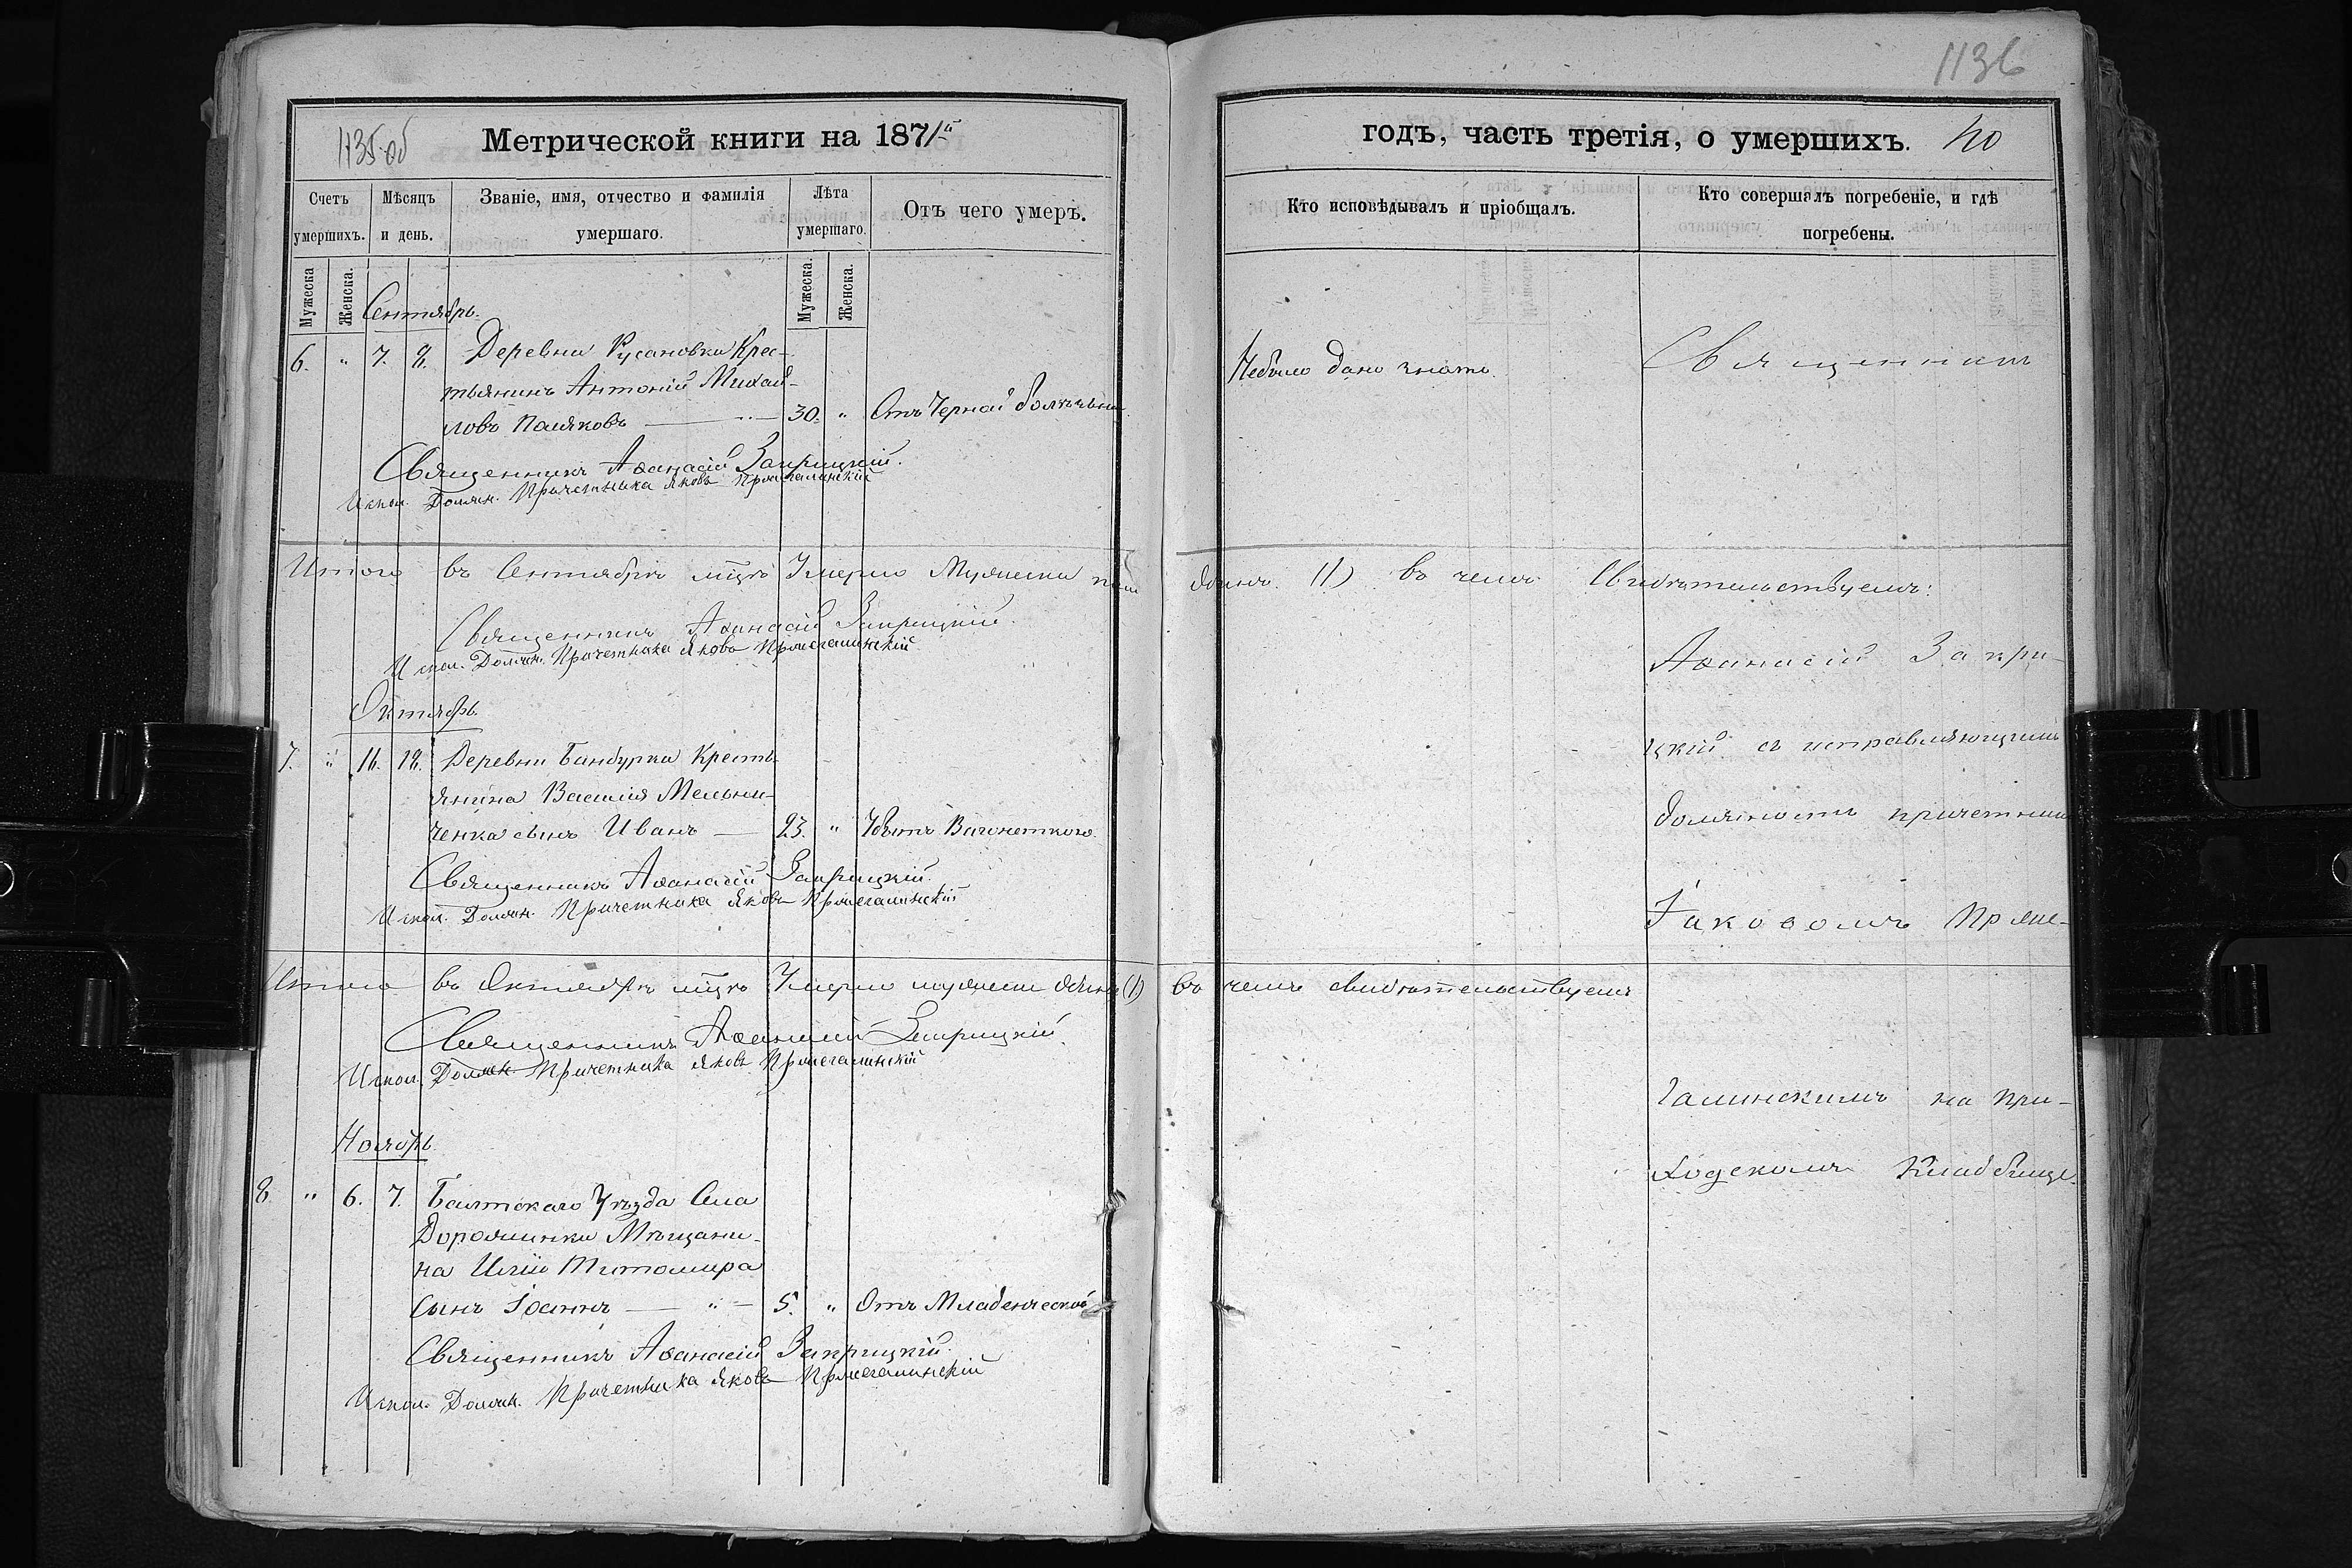 1135об
Метрической книги на 1871й
Счетъ умершихъ.
Мѣсяцъ и день.
Званіе, имя, отчество и фамилія умершаго.
Лѣта умершаго.
Отъ чего умеръ.
Мужеска
Женска.
Мужеска.
Женска.
Сентябрь.
6. " 7. 8. Деревни Русановки Крес-
тьянинъ Антоній Михай-
ловъ Поляковъ — " — 30. " Отъ Черной болѣзни
Священникъ Аѳанасій Закрицкій.
Испол. Должн. Причетника Яковъ
Итого въ Сентябрѣ мцѣ Умерло Мужеска пола
Священникъ Аѳанасій Закрицкій.
Испол. Должн. Причетника Яковъ
Октябрь
7. " 16. 18. Деревни Бандурки Кресть-
янина Василія Мельни-
ченка сынъ Иванъ — 23. " Убитъ
Священникъ Аѳанасій Закрицкій.
Испол. Должн. Причетника Яковъ
Итого въ Октябрѣ мцѣ Умерло мужеска одинъ (1)
Священникъ Аѳанасій Закрицкій.
Испол. Должн. Причетника Яковъ
Ноябрь
8. " 6. 7. Балтскаго Уѣзда Села
Дорожинки Мѣщани-
на Иліи Житомира
Сынъ Іоаннъ — " — 5. " Отъ Младенческой
Священникъ Аѳанасій Закрицкій.
Испол. Должн. Причетника Яковъ
1136
годъ, часть третія, о умершихъ. 40
Кто исповѣдывалъ и пріобщалъ.
Кто совершалъ погребеніе, и гдѣ
погребены.
Небыло дано знать.
Священникъ
одинъ (1) въ чемъ Свидѣтельствуемъ:
Аѳанасій Закри-
цкій съ исправляющимъ
должность причетника
Іаковомъ
въ чемъ свидѣтельствуемъ
галинскимъ на при-
ходскомъ Кладбище.